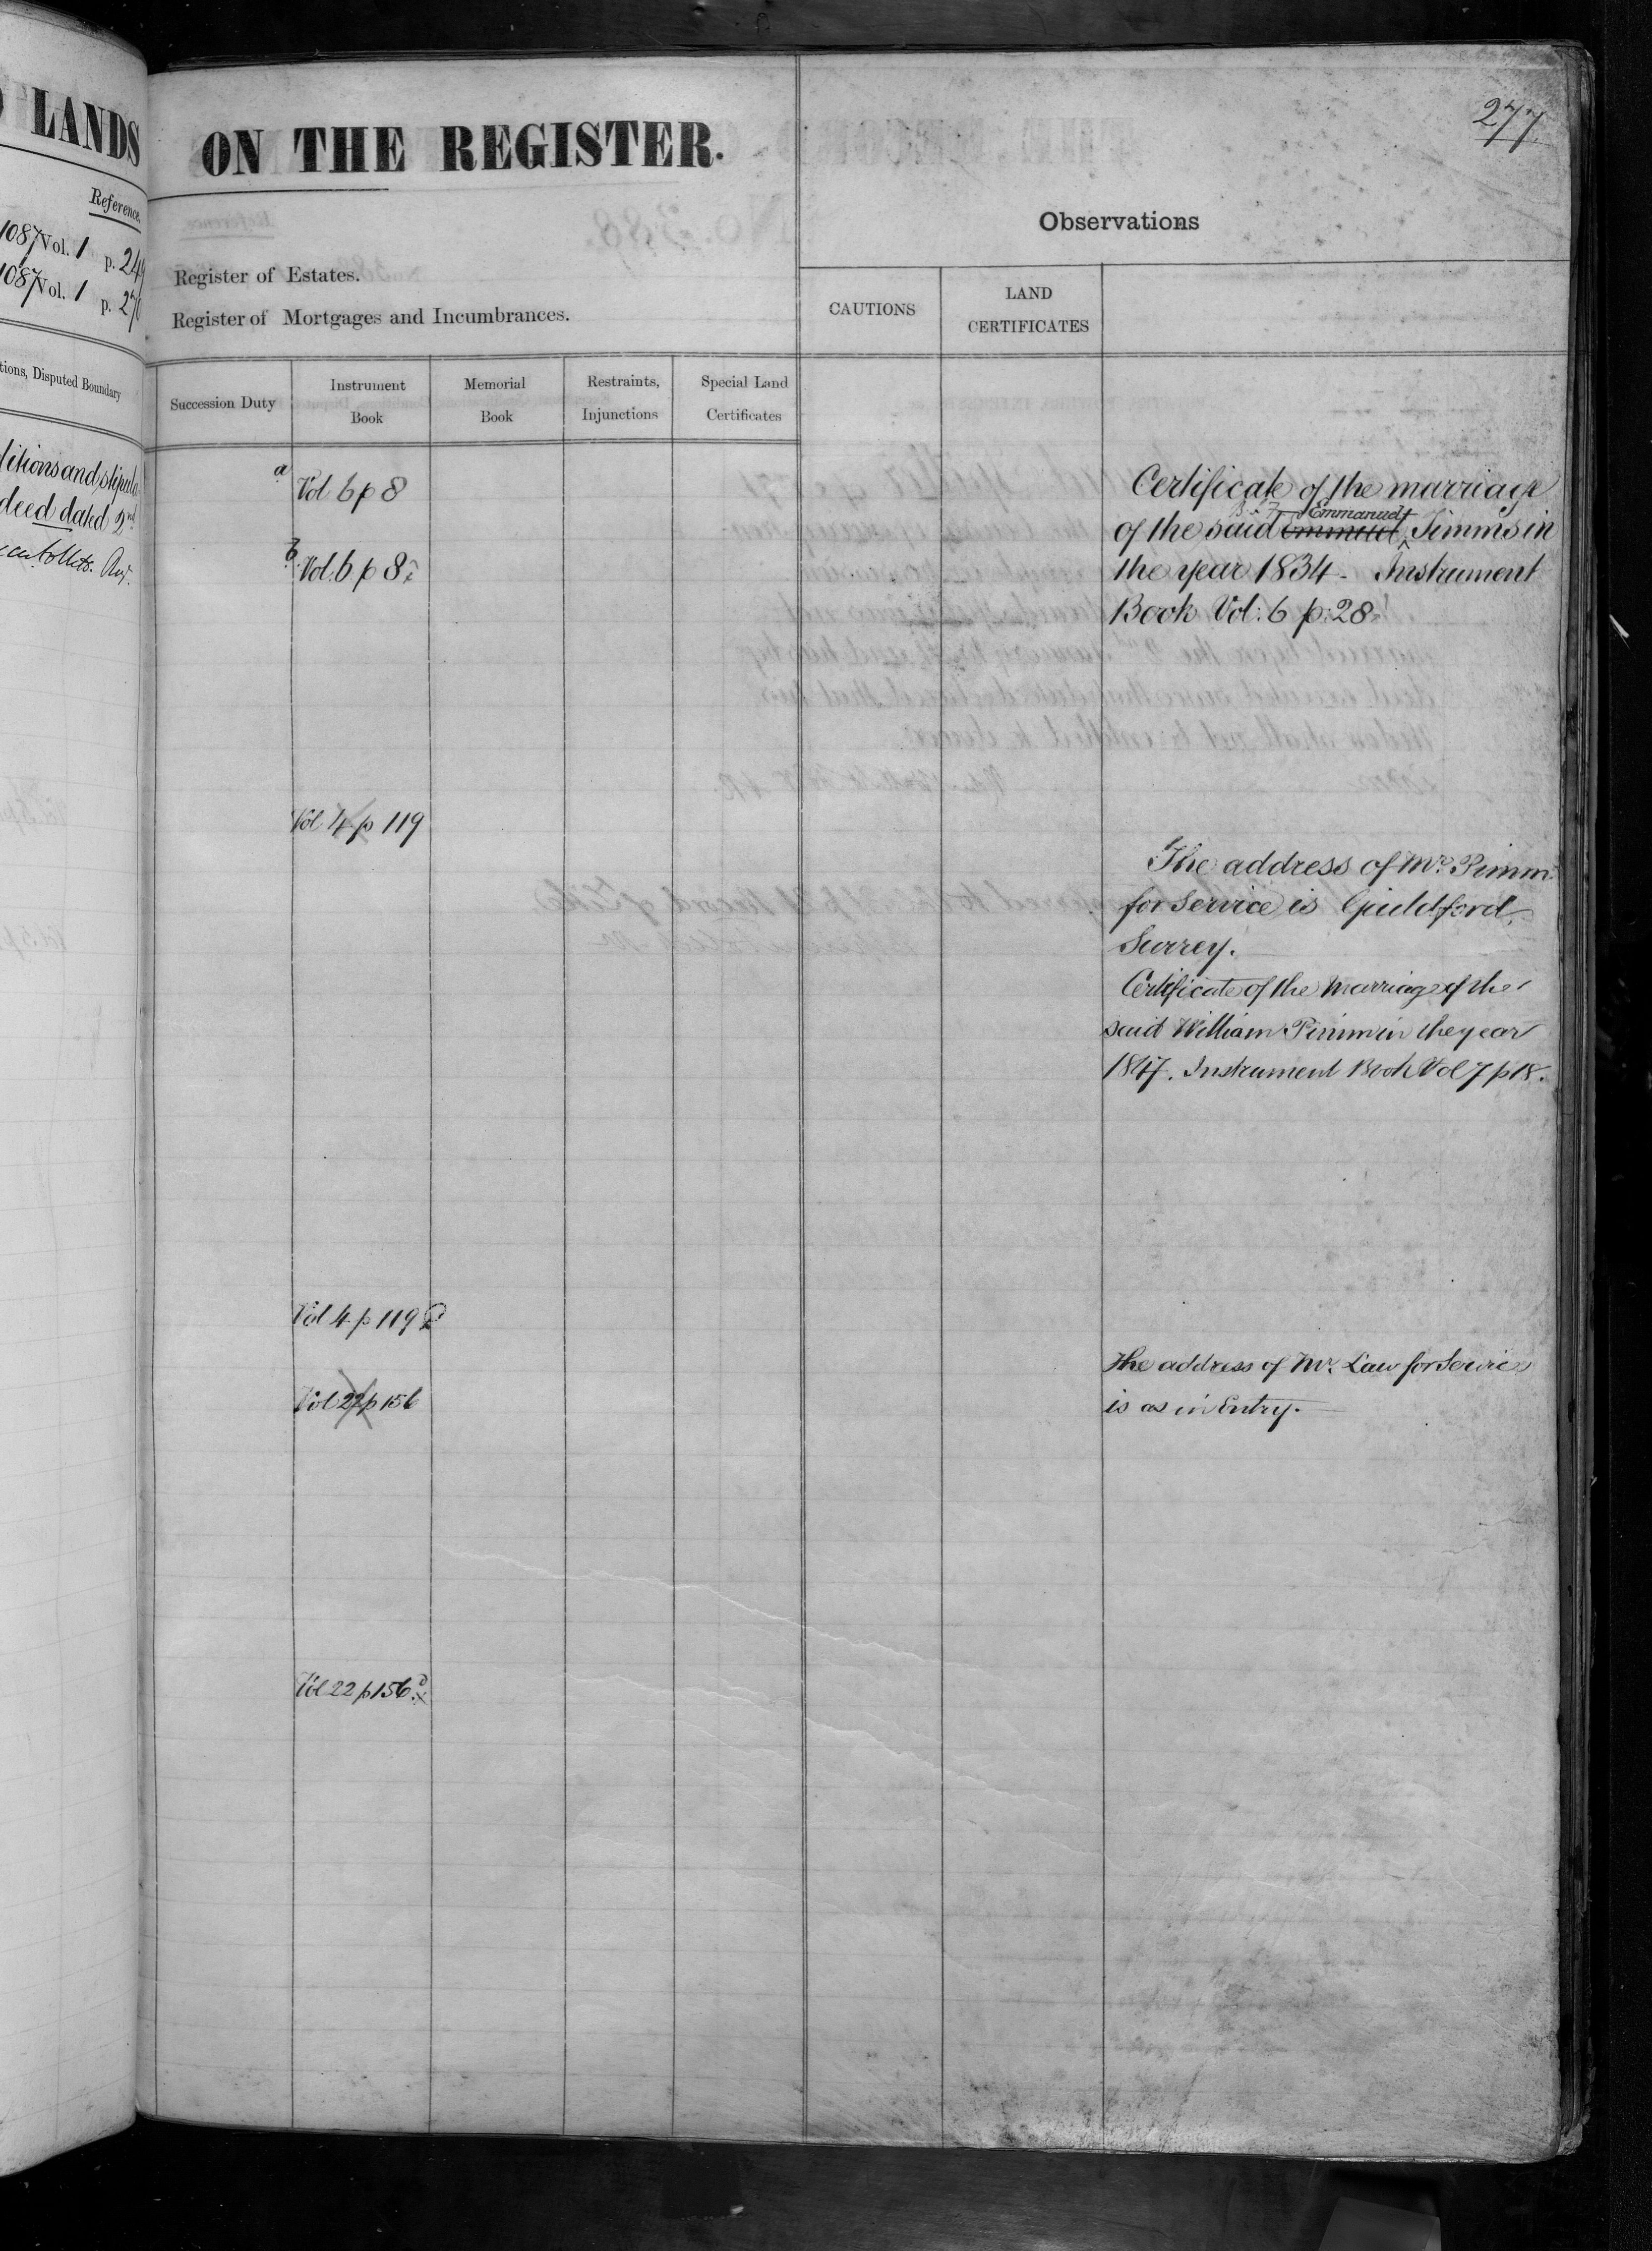 LANDS
Reference.
1087 Vol. 1 p. 249
1087 Vol. 1 p. 270
tions, Disputed Boundary
ditions and stipula
deed dated 2nd
277
ON THE REGISTER.
Register of Estates.
Register of Mortgages and Incumbrances.
Observations
CAUTIONS
LAND
CERTIFICATES
Succession Duty
Instrument
Book
Memorial
Book
Restraints,
Injunctions
Special Land
Certificates
a Vol 6 p 8
b Vol. 6 p 8
Vol 4 p 119
Vol 4 p 119
Vol 22 p 156
Vol 22 p 156
Certificate of the marriage
Emmanuel
of the said Timms in
the year 1834 - Instrument
Book Vol: 6 p: 28
The address of Mr. Pimm
for Service is Guildford,
Surrey.
Certificate of the Marriage of the
said William Pimm in the year
1847. Instrument Book Vol 7 p 18.
The address of Mr. Law for Service
is as in Entry.